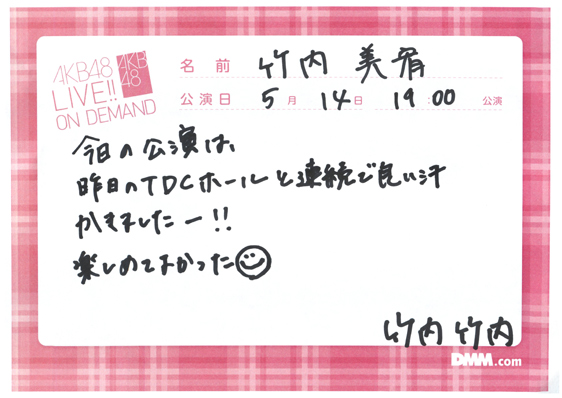 AKB48
LIVE!!
ON DEMAND
AKB
48
名前 竹内 美宥
公演日 5月 14日 19:00 公演
今日の公演は、
昨日のTDCホールと連続で良い汗
かきましたー!!
楽しめてよかった
竹内 竹内
DMM.com